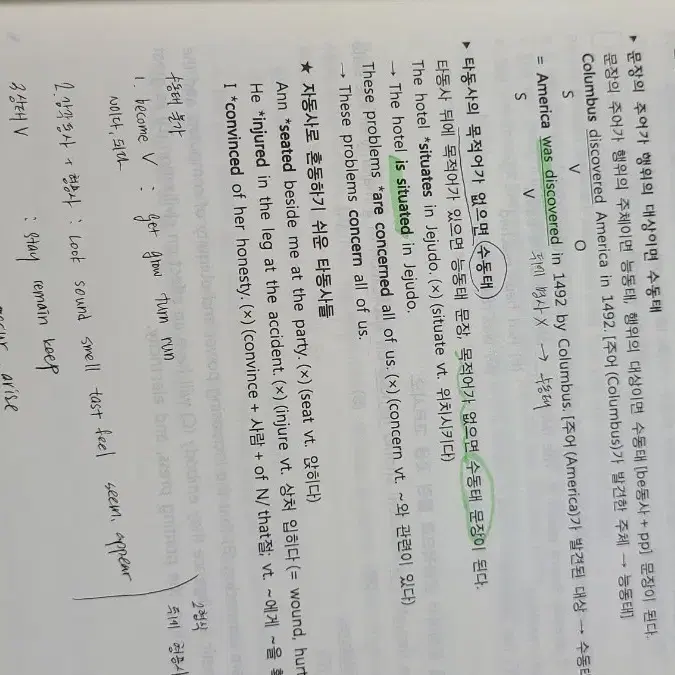 ▸ 문장의 주어가 행위의 대상이면 수동태
문장의 주어가 행위의 주체이면 능동태, 행위의 대상이면 수동태 [be동사 + pp] 문장이 된다.
Columbus discovered America in 1492. [주어 (Columbus)가 발견한 주체 → 능동태]
S V O
= America was discovered in 1492 by Columbus. [주어 (America)가 발견된 대상 → 수동태
S V 뒤에 명사 X → 수동태
▸ 타동사의 목적어가 없으면 수동태
타동사 뒤에 목적어가 있으면 능동태 문장, 목적어가 없으면 수동태 문장이 된다.
The hotel *situates in Jejudo. (×) (situate vt. 위치시키다)
→ The hotel is situated in Jejudo.
These problems *are concerned all of us. (×) (concern vt. ~와 관련이 있다)
→ These problems concern all of us.
★ 자동사로 혼동하기 쉬운 타동사들
Ann *seated beside me at the party. (×) (seat vt. 앉히다)
He *injured in the leg at the accident. (×) (injure vt. 상처 입히다 (= wound, hurt
I *convinced of her honesty. (×) (convince + 사람 + of N/ that절; vt. ~에게 ~을
수동태 불가
1. become V : get grow turn run
되다
2. 감각동사 + 형용사 : Look sound smell tast feel seem, appear
2형식
뒤에 형용사
3. 상태 V : stay remain keep
occur arise